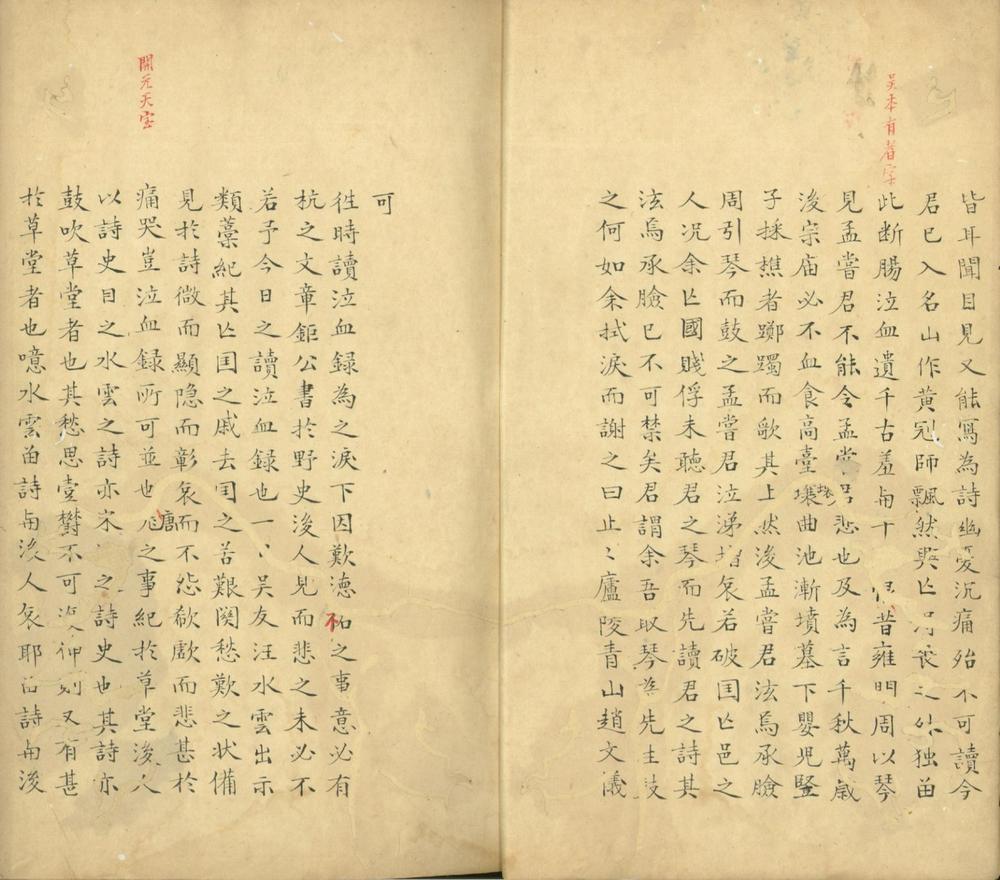 吴本有者字
皆耳聞目見又能寫為詩幽憂沉痛殆不可讀今
君已入名山作黄冠師飄然與亡独畄
此断腸泣血遺千古羞與昔雍門周以琴
見孟嘗君不能令孟嘗君悲也及為言千秋萬歲
後宗庙必不血食高臺壞曲池漸墳墓下嬰児竪
子採樵者躑躅而歌其上然後孟嘗君泫焉承臉
周引琴而鼓之孟嘗君泣涕增哀若破国亡邑之
人况余亡國賤俘未聽君之琴而先讀君之詩其
泫焉承臉已不可禁矣君謂余吾取琴為先生鼓
之何如余拭淚而謝之曰止〻廬陵青山趙文儀
可
徃時讀泣血録為之淚下因歎德祐之事意必有
杭之文章鉅公書於野史後人見而悲之未必不
若予今日之讀泣血録也一〻吴友汪水雲出示
類藁紀其亡国之戚去国之苦艱関愁歎之状備
見於詩微而顯隐而彰哀而不怨欷歔而悲甚於
痛哭豈泣血録所可並也唐之事紀於草堂後人
開元天宝
以詩史目之水雲之詩亦宋之詩史也其詩亦
鼓吹草堂者也其愁思壹欝不可復伸則又有甚
於草堂者也噫水雲畄詩與後人哀耶畄詩與後